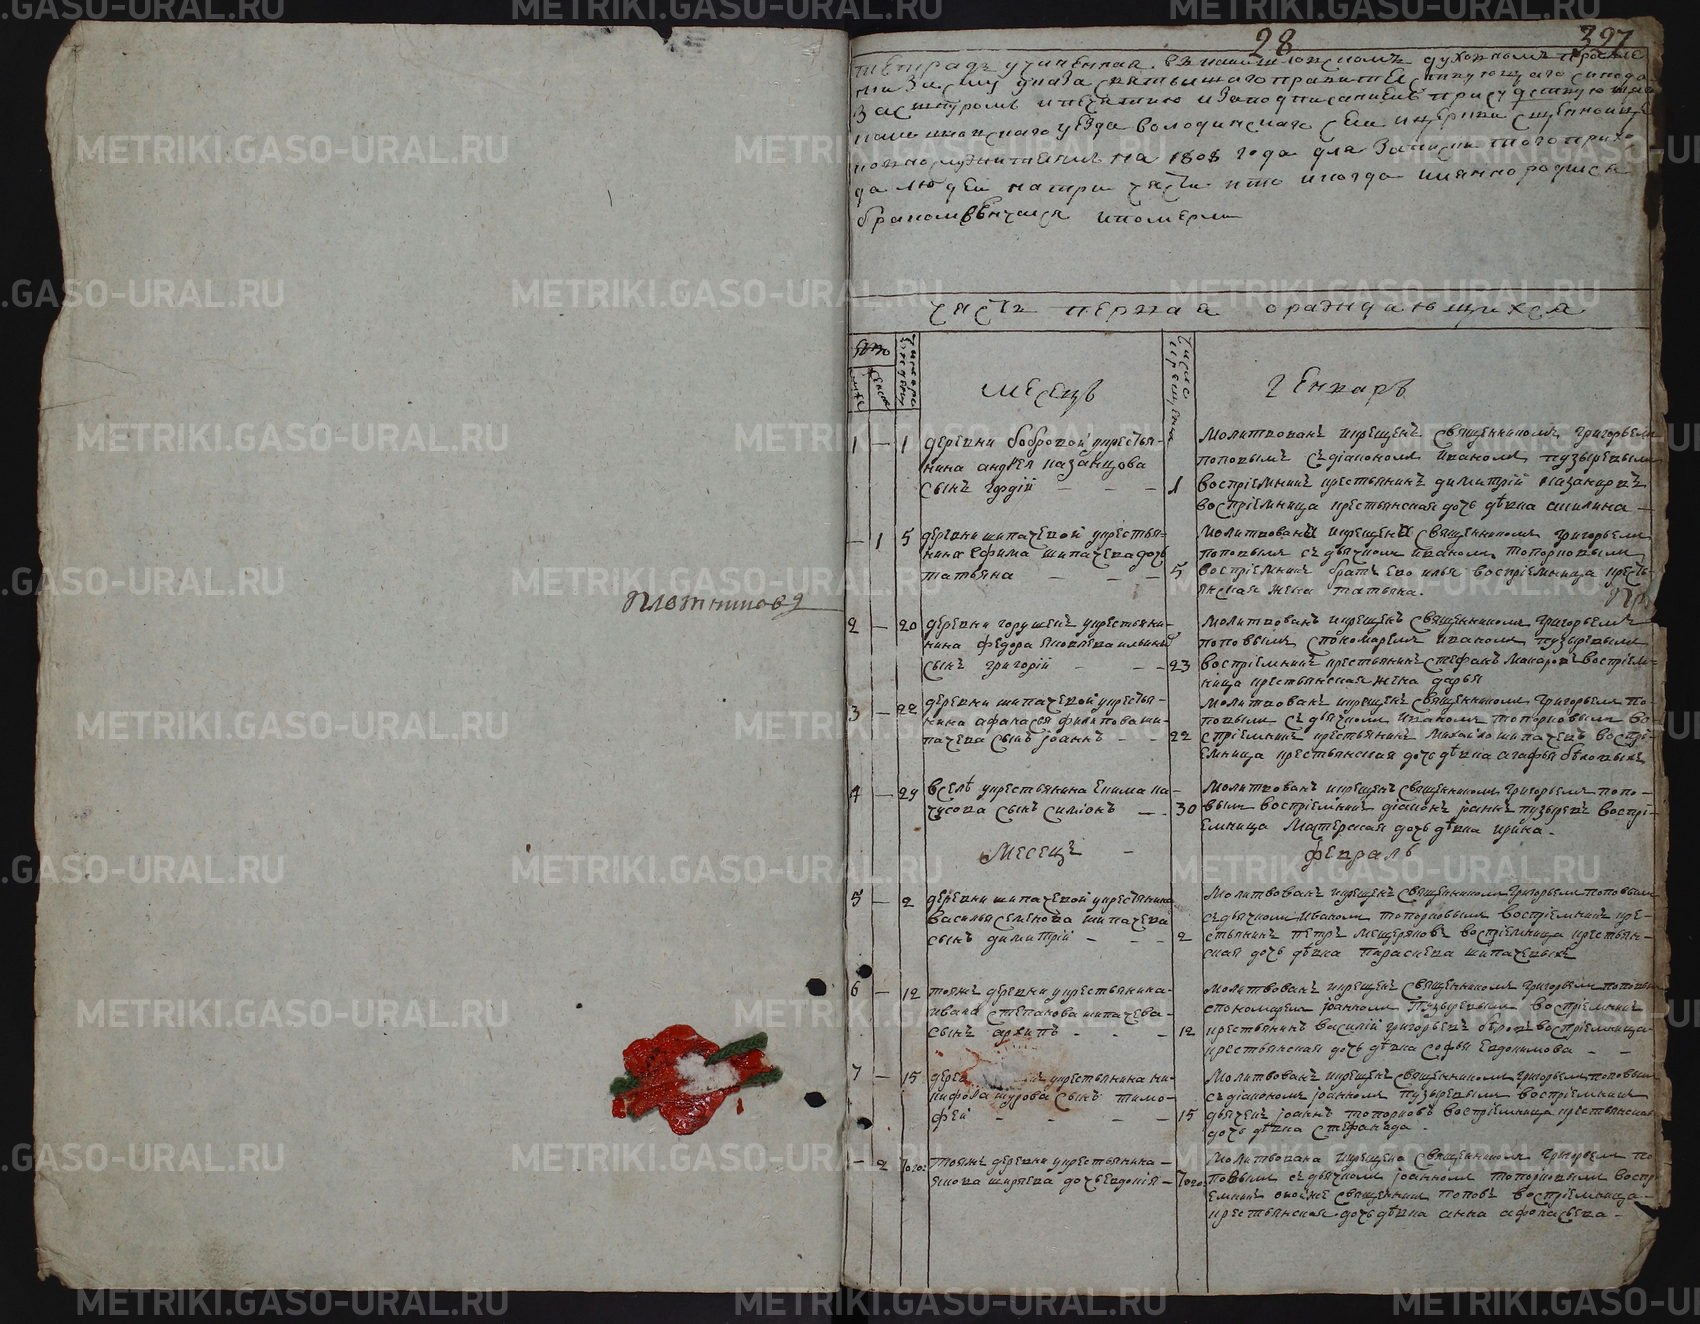 METRIKI.GASO-URAL.RU
28
327
тетрадь учиненная въ камышловскомъ духовномъ правле
нии указа святейшаго правительствующаго синода
камышловскаго уезда володинскаго села церкви
на 1808 года для записи того прихо
да людей на три части кто когда имянно родился
бракомвенчался ипомерли
часть первая ораждающихся
месецъ
генварь
1 — 1 деревни бобровой укрестья-
нина андрея казанцова
сынъ гордий — — — 1
молитвованъ икрещенъ священникомъ григорьемъ
поповымъ съдиакономъ иваномъ пузыревымъ
воспрiемникъ крестьянинъ димитрiй казанцовъ
воспрiемница крестьянская дочь дѣвка акилина —
— 1 5 деревни шипачевой укрестья-
нина ефима шипачева дочь
татьяна — — 5
молитвована икрещена священникомъ григорьемъ
поповымъ съдьячкомъ иваномъ топорковымъ
воспрiемникъ братъ ево илья воспрiемница кресть-
янская жена татьяна.
Плотниковъ
2 — 20 деревни горушекъ укрестьяни-
нина федора яковлева
сынъ григорiй — — 23
молитвованъ икрещенъ священникомъ григорьемъ
поповымъ спономаремъ иваномъ пузыревымъ
воспрiемникъ крестьянинъ стефанъ макаровъ воспрiем-
ница крестьянская жена дарья
3 — 22 деревни шипачевой укрестья-
нина афанасья филипова ши-
пачева сынъ iоаннъ — — 22
молитвованъ икрещенъ священникомъ григорьемъ по-
повымъ съдьячкомъ иваномъ топорковымъ во-
спрiемникъ крестьянинъ михайло шипачевъ воспрi-
емница крестьянская дочь дѣвка агафья бѣловыхъ
4 — 29 вселѣ укрестьянина екима ка-
чусова сынъ симiонъ — 30
молитвованъ икрещенъ священникомъ григорьемъ попо-
вымъ воспрiемникъ дiаконъ iоаннъ пузыревъ воспрi-
емница мастерская дочь дѣвка ирина —
Месецъ —
февраль
5 — 2 деревни шипачевой укрестьянина
василья семенова шипачева
сынъ димитрiй — — — 2
молитвованъ икрещенъ священникомъ григорьемъ поповымъ
съдьячкомъ иваномъ топорковымъ воспрiемникъ кре-
стьянинъ петръ мещеряковъ воспрiемница крестьян-
ская дочь дѣвка параскева шипачевыхъ
6 — 12 тояжъ деревни укрестьянина-
ивана степанова шипачева-
сынъ архипъ — — — 12
молитвованъ икрещенъ священникомъ григорьемъ поповымъ
спономаремъ iоанномъ пузыревымъ воспрiемникъ
крестьянинъ василiй григорьевъ бѣловъ воспрiемница-
крестьянская дочь дѣвка софья евдокимова — —
7 — 15 укрестьянина ни-
кифора шурова сынъ тимо-
фей — — — — 15
молитвованъ икрещенъ священникомъ григорьемъ поповымъ
съдiакономъ iоанномъ пузыревымъ воспрiемникъ
дьячекъ iоаннъ топорковъ воспрiемница крестьянская
дочь дѣвка стефанида —
— 2 того тояжъ деревни укрестьянина —
якова ширяева дочь евдокiя — того
молитвована икрещена священникомъ григорьемъ по
повымъ съдьячкомъ iоанномъ топорковымъ воспрi
емникъ оноеже священникъ поповъ воспрiемница-
крестьянская дочь дѣвка анна афонасьева —